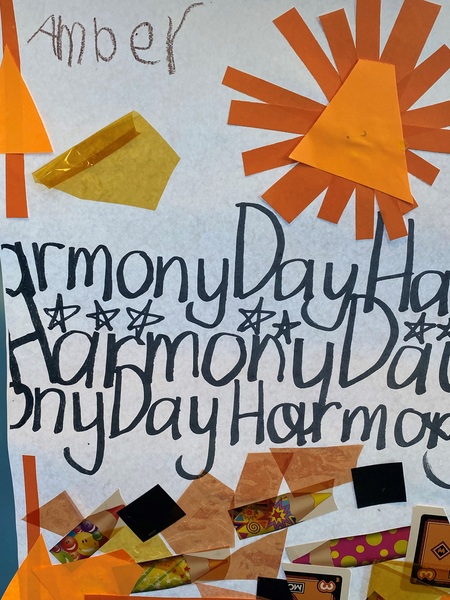 Amber
armonyDayHa
HarmonyDay
onyDayHarmo